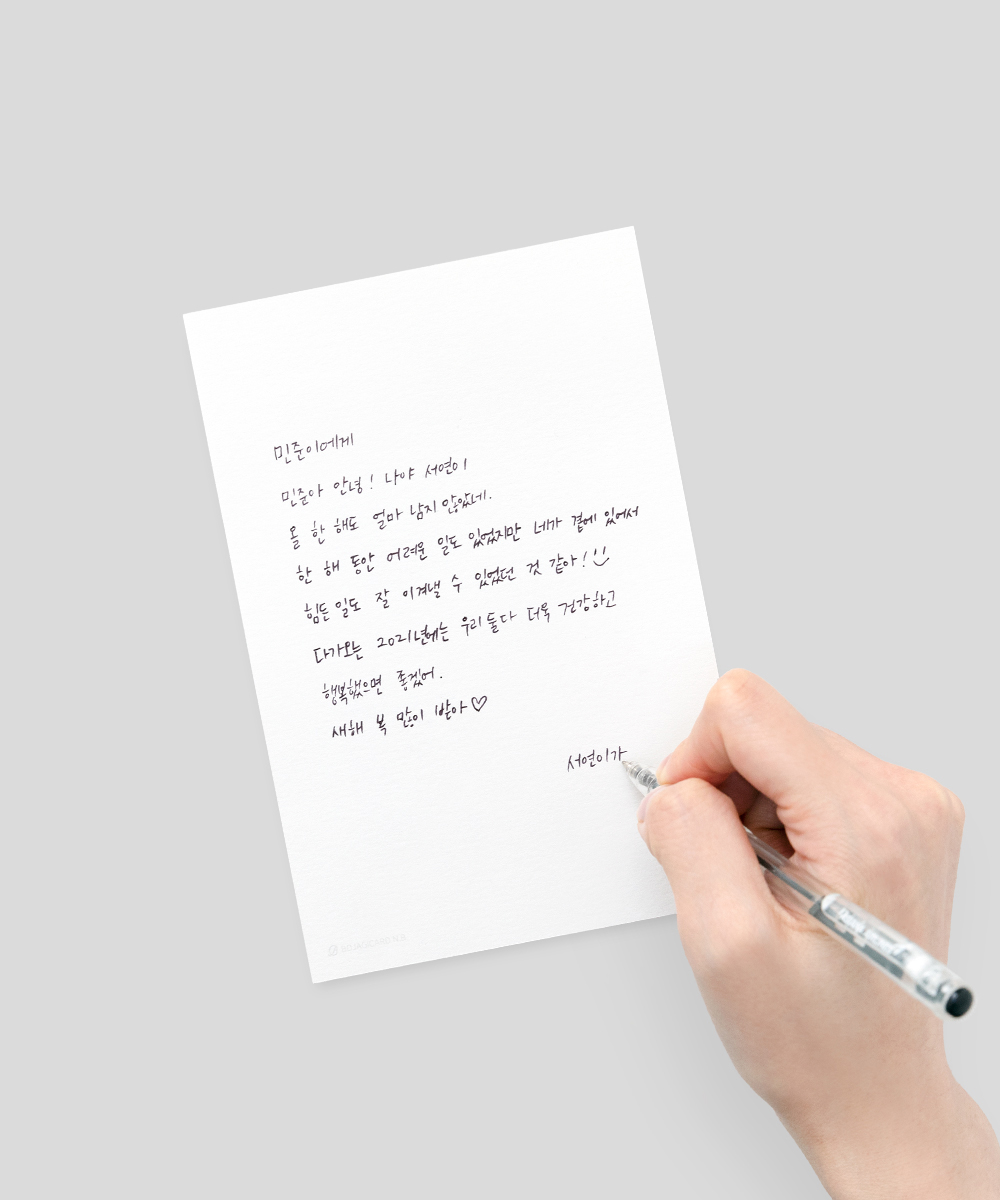 민준이에게
민준아 안녕! 나야 서연이
올 한 해도 얼마 남지 않았네.
한 해 동안 어려운 일도 있었지만 네가 곁에 있어서
힘든 일도 잘 이겨낼 수 있었던 것 같아!
다가오는 2021년에는 우리 둘다 더욱 건강하고
행복했으면 좋겠어.
새해 복 많이 받아♡
서연이가